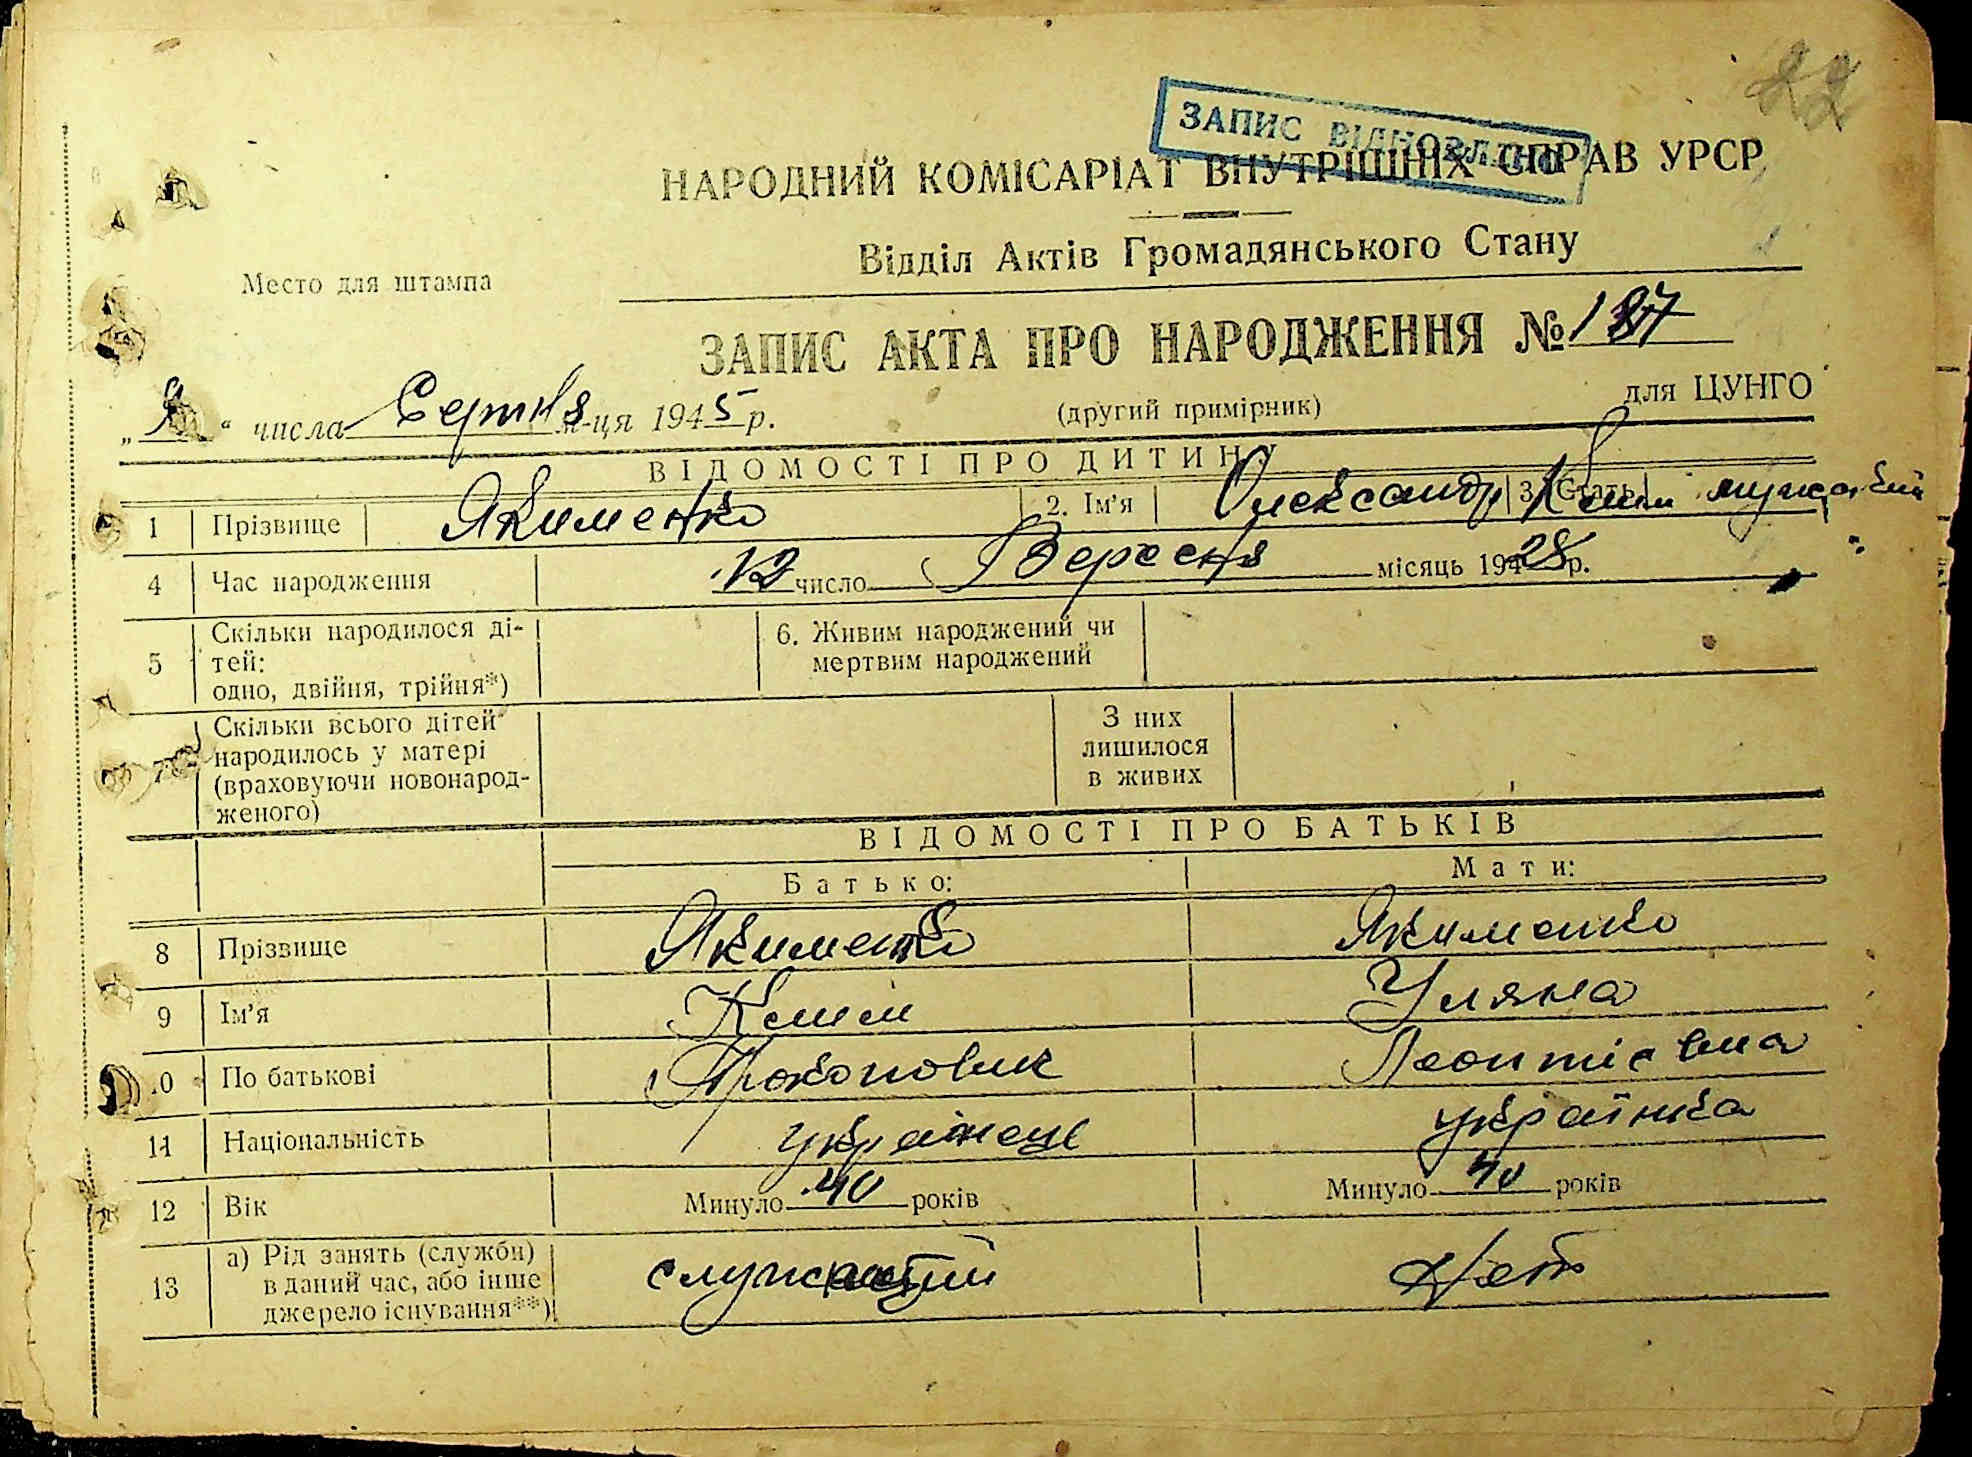 22
ЗАПИС ВІДНОВЛЕНО
НАРОДНИЙ КОМІСАРІАТ ВНУТРІШНІХ СПРАВ УРСР
Відділ Актів Громадянського Стану
Место для штампа
ЗАПИС АКТА ПРО НАРОДЖЕННЯ № 187
" " числа Серпня м-ця 1945 р.
(другий примірник)
для ЦУНГО
ВІДОМОСТІ ПРО ДИТИНУ
1 Прізвище Якименко 2. Ім'я Олександр 3. Стать мужский
4 Час народження 12 число Вересня місяць 1928 р.
5 Скільки народилося ді-
тей:
одно, двійня, трійня*)
6. Живим народжений чи
мертвим народжений
7 Скільки всього дітей
народилось у матері
(враховуючи новонарод-
женого)
З них
лишилося
в живих
ВІДОМОСТІ ПРО БАТЬКІВ
Батько: Мати:
8 Прізвище Якименко Якименко
9 Ім'я Клим Уляна
10 По батькові Прокопович Леонтіевна
11 Національність українець українка
12 Вік Минуло 40 років Минуло 40 років
13 а) Рід занять (служби)
в даний час, або інше
джерело існування**)
служащий